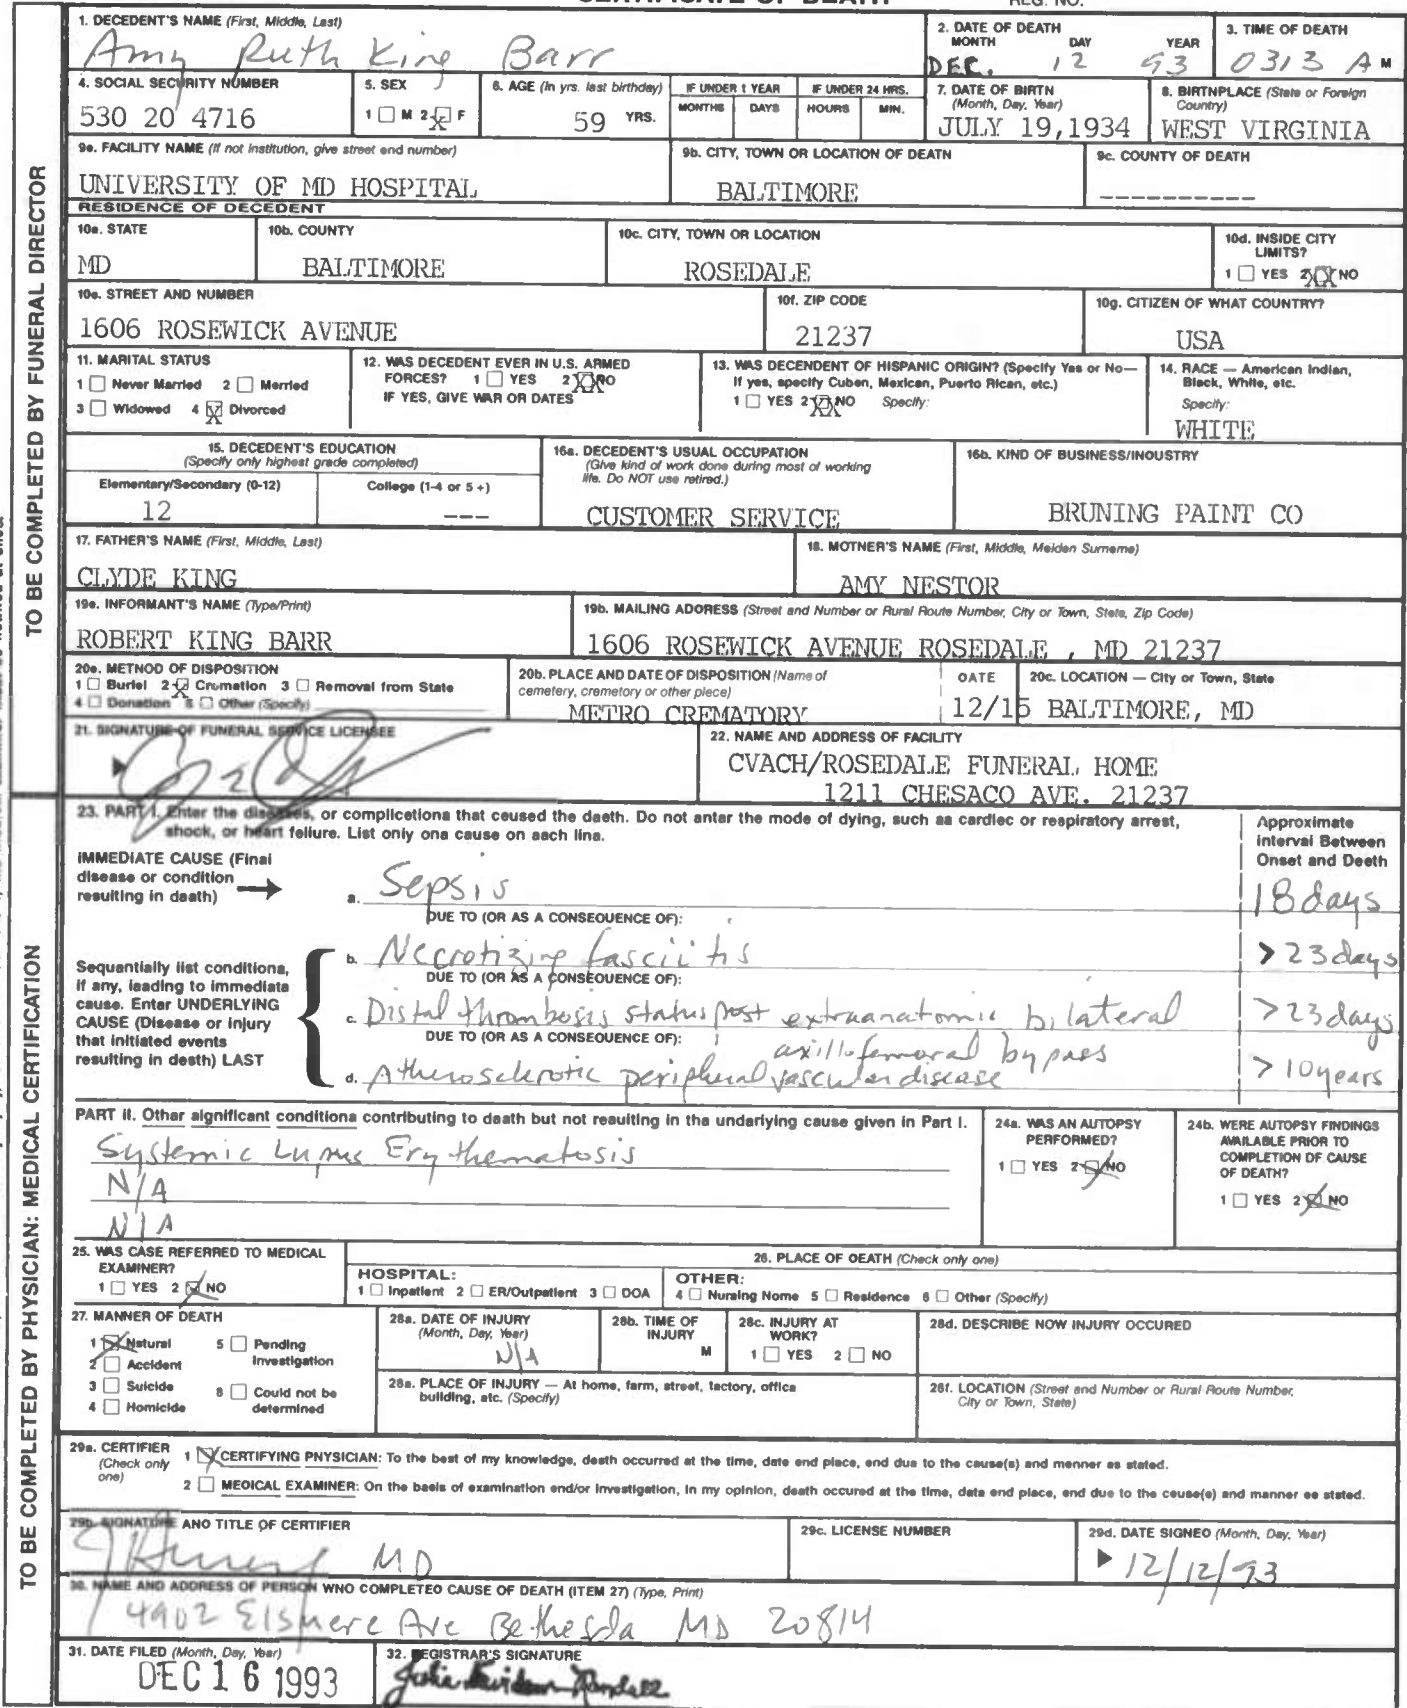 CERTIFICATE OF DEATH REG. NO.
1. DECEDENT'S NAME (First, Middle, Last)
Amy Ruth King Barr
2. DATE OF DEATH
MONTH DAY YEAR
DEC. 12 93
3. TIME OF DEATH
0313 A M
4. SOCIAL SECURITY NUMBER
530 20 4716
5. SEX
1 M 2 X F
6. AGE (In yrs. last birthday)
59 YRS.
IF UNDER 1 YEAR
MONTHS DAYS
IF UNDER 24 HRS.
HOURS MIN.
7. DATE OF BIRTH
(Month, Day, Year)
JULY 19,1934
8. BIRTHPLACE (State or Foreign
Country)
WEST VIRGINIA
9e. FACILITY NAME (If not institution, give street end number)
UNIVERSITY OF MD HOSPITAL
9b. CITY, TOWN OR LOCATION OF DEATH
BALTIMORE
9c. COUNTY OF DEATH
----------
RESIDENCE OF DECEDENT
10e. STATE
MD
10b. COUNTY
BALTIMORE
10c. CITY, TOWN OR LOCATION
ROSEDALE
10d. INSIDE CITY
LIMITS?
1 YES 2 XX NO
10e. STREET AND NUMBER
1606 ROSEWICK AVENUE
10f. ZIP CODE
21237
10g. CITIZEN OF WHAT COUNTRY?
USA
11. MARITAL STATUS
1 Never Married 2 Merried
3 Widowed 4 X Divorced
12. WAS DECEDENT EVER IN U.S. ARMED
FORCES? 1 YES 2 XX NO
IF YES, GIVE WAR OR DATES
13. WAS DECENDENT OF HISPANIC ORIGIN? (Specify Yes or No—
If yes, specify Cuben, Mexican, Puerto Rican, etc.)
1 YES 2 XX NO Specify:
14. RACE — American Indian,
Bleck, White, etc.
Specify:
WHITE
15. DECEDENT'S EDUCATION
(Specify only highest grade completed)
Elementary/Secondary (0-12)
12
College (1-4 or 5 +)
---
16a. DECEDENT'S USUAL OCCUPATION
(Give kind of work done during most of working
life. Do NOT use retired.)
CUSTOMER SERVICE
16b. KIND OF BUSINESS/INOUSTRY
BRUNING PAINT CO
17. FATHER'S NAME (First, Middle, Last)
CLYDE KING
18. MOTNER'S NAME (First, Middle, Meiden Surneme)
AMY NESTOR
19e. INFORMANT'S NAME (Type/Print)
ROBERT KING BARR
19b. MAILING ADORESS (Street and Number or Rural Route Number, City or Town, State, Zip Code)
1606 ROSEWICK AVENUE ROSEDALE , MD 21237
20e. METNOD OF DISPOSITION
1 Buriel 2 X Cremation 3 Removal from State
4 Donation 5 Other (Specify)
20b. PLACE AND DATE OF DISPOSITION (Name of
cemetery, cremetory or other plece)
METRO CREMATORY
OATE
12/15
20c. LOCATION — City or Town, State
BALTIMORE, MD
21. SIGNATURE OF FUNERAL SERVICE LICENSEE
22. NAME AND ADDRESS OF FACILITY
CVACH/ROSEDALE FUNERAL HOME
1211 CHESACO AVE. 21237
TO BE COMPLETED BY FUNERAL DIRECTOR
23. PART I. Enter the diseases, or complicetions that ceused the daeth. Do not antar the mode of dying, such aa cardlec or respiratory arrest,
shock, or heart feilure. List only ona cause on aach lina.
Approximate
interval Between
Onset and Deeth
IMMEDIATE CAUSE (Final
disease or condition
resulting in daath)
a. Sepsis
18 days
DUE TO (OR AS A CONSEOUENCE OF):
Sequentially list conditiona,
if any, laading to immediate
cause. Enter UNDERLYING
CAUSE (Disease or injury
that initiated events
resulting in death) LAST
b. Necrotizing fasciitis
> 23 days
DUE TO (OR AS A CONSEOUENCE OF):
c. Distal thrombosis status post extraanatomic bilateral
> 23 days
DUE TO (OR AS A CONSEOUENCE OF):
axillofemoral bypass
d. Atherosclerotic peripheral vascular disease
> 10 years
PART II. Othar aignificant conditiona contributing to daath but not reaulting in the underlying cause given in Part I.
Systemic Lupus Erythematosis
N/A
N/A
24a. WAS AN AUTOPSY
PERFORMED?
1 YES 2 NO
24b. WERE AUTOPSY FINDINGS
AVAILABLE PRIOR TO
COMPLETION DF CAUSE
OF DEATH?
1 YES 2 NO
25. WAS CASE REFERRED TO MEDICAL
EXAMINER?
1 YES 2 NO
26. PLACE OF OEATH (Check only one)
HOSPITAL:
1 Inpatlent 2 ER/Outpatlent 3 DOA
OTHER:
4 Nuraing Nome 5 Residence 6 Other (Specify)
27. MANNER OF DEATH
1 Natural
2 Accident
3 Suicide
4 Homicide
5 Pending
Investigation
8 Could not be
determined
28a. DATE OF INJURY
(Month, Day, Year)
N/A
28b. TIME OF
INJURY
M
28c. INJURY AT
WORK?
1 YES 2 NO
28d. DESCRIBE NOW INJURY OCCURED
28a. PLACE OF INJURY — At home, farm, street, factory, office
building, atc. (Specify)
28f. LOCATION (Street and Number or Rural Route Number,
City or Town, State)
29a. CERTIFIER
(Check only
one)
1 CERTIFYING PNYSICIAN: To the best of my knowledge, death occurred at the time, date end place, end due to the cause(s) and menner as stated.
2 MEOICAL EXAMINER: On the basis of examination end/or investigation, in my opinion, death occured at the time, data end place, end due to the ceuse(e) and manner ee stated.
29b. SIGNATURE ANO TITLE OF CERTIFIER
MD
29c. LICENSE NUMBER
29d. DATE SIGNEO (Month, Day, Year)
12/12/93
30. NAME AND ADDRESS OF PERSON WNO COMPLETEO CAUSE OF DEATH (ITEM 27) (Type, Print)
4902 Elsmere Ave Bethesda MD 20814
31. DATE FILED (Month, Day, Year)
DEC 16 1993
32. REGISTRAR'S SIGNATURE
TO BE COMPLETED BY PHYSICIAN: MEDICAL CERTIFICATION